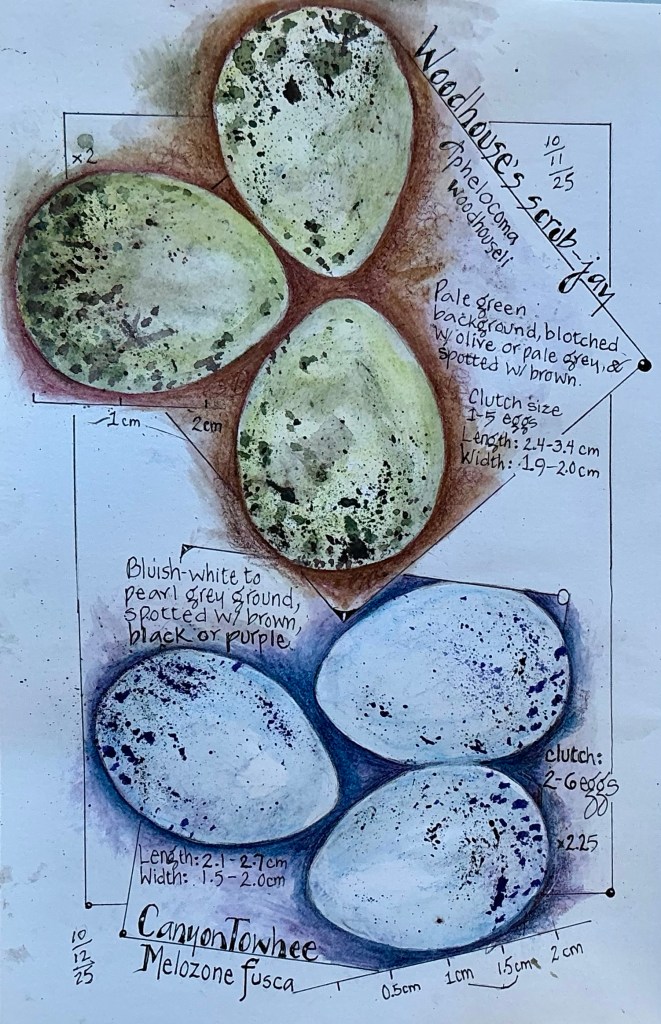 Woodhouse's scrub-jay
Aphelocoma
woodhouseii
10
11
25
x2
Pale green
background, blotched
w/ olive or pale grey, &
spotted w/ brown.
Clutch size
1-5 eggs
Length: 2.4-3.4 cm
Width: 1.9-2.0cm
1cm
2cm
Bluish-white to
pearl grey ground,
spotted w/ brown,
black or purple.
clutch:
2-6 eggs
x2.25
Length: 2.1-2.7cm
Width: 1.5-2.0cm
Canyon Towhee
Melozone fusca
10
12
25
0.5cm
1cm
1.5cm
2cm